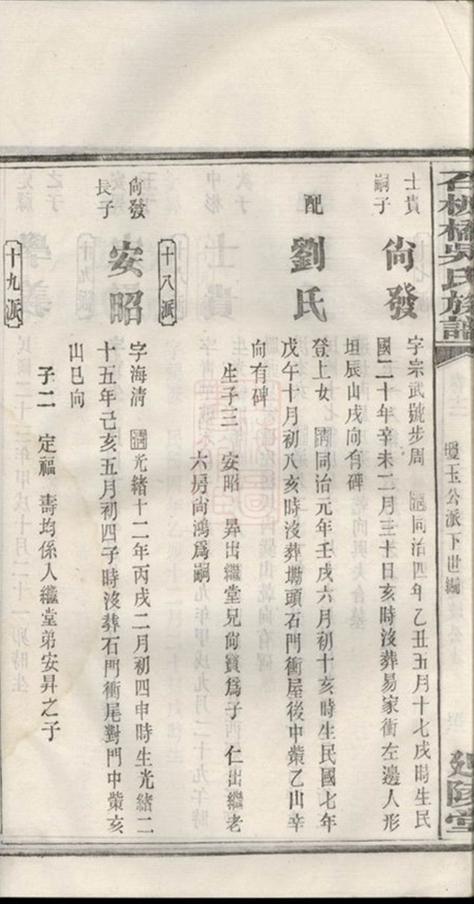 石桥橋吳氏族譜
瓊玉公派下世編
延陵堂
士貴
嗣子
尙發
字宗武號步周 清同治四年乙丑五月十七戌時生民
國二十年辛未二月三十日亥時沒葬易家衝左邊人形
垣辰山戌向有碑
配
劉氏
登上女 清同治元年壬戌六月初十亥時生民國七年
戊午十月初八亥時沒葬塘頭石門衝屋後中塋乙山辛
向有碑
生子三 安昭 昇出繼堂兄尙賓爲子 仁出繼老
六房尚鴻爲嗣
十八派
尙發
長子
安昭
字海清 清光緒十二年丙戌二月初四申時生光緒二
十五年己亥五月初四子時沒葬石門衝尾對門中塋亥
山巳向
子二 定福 壽均係人繼堂弟安昇之子
十九派